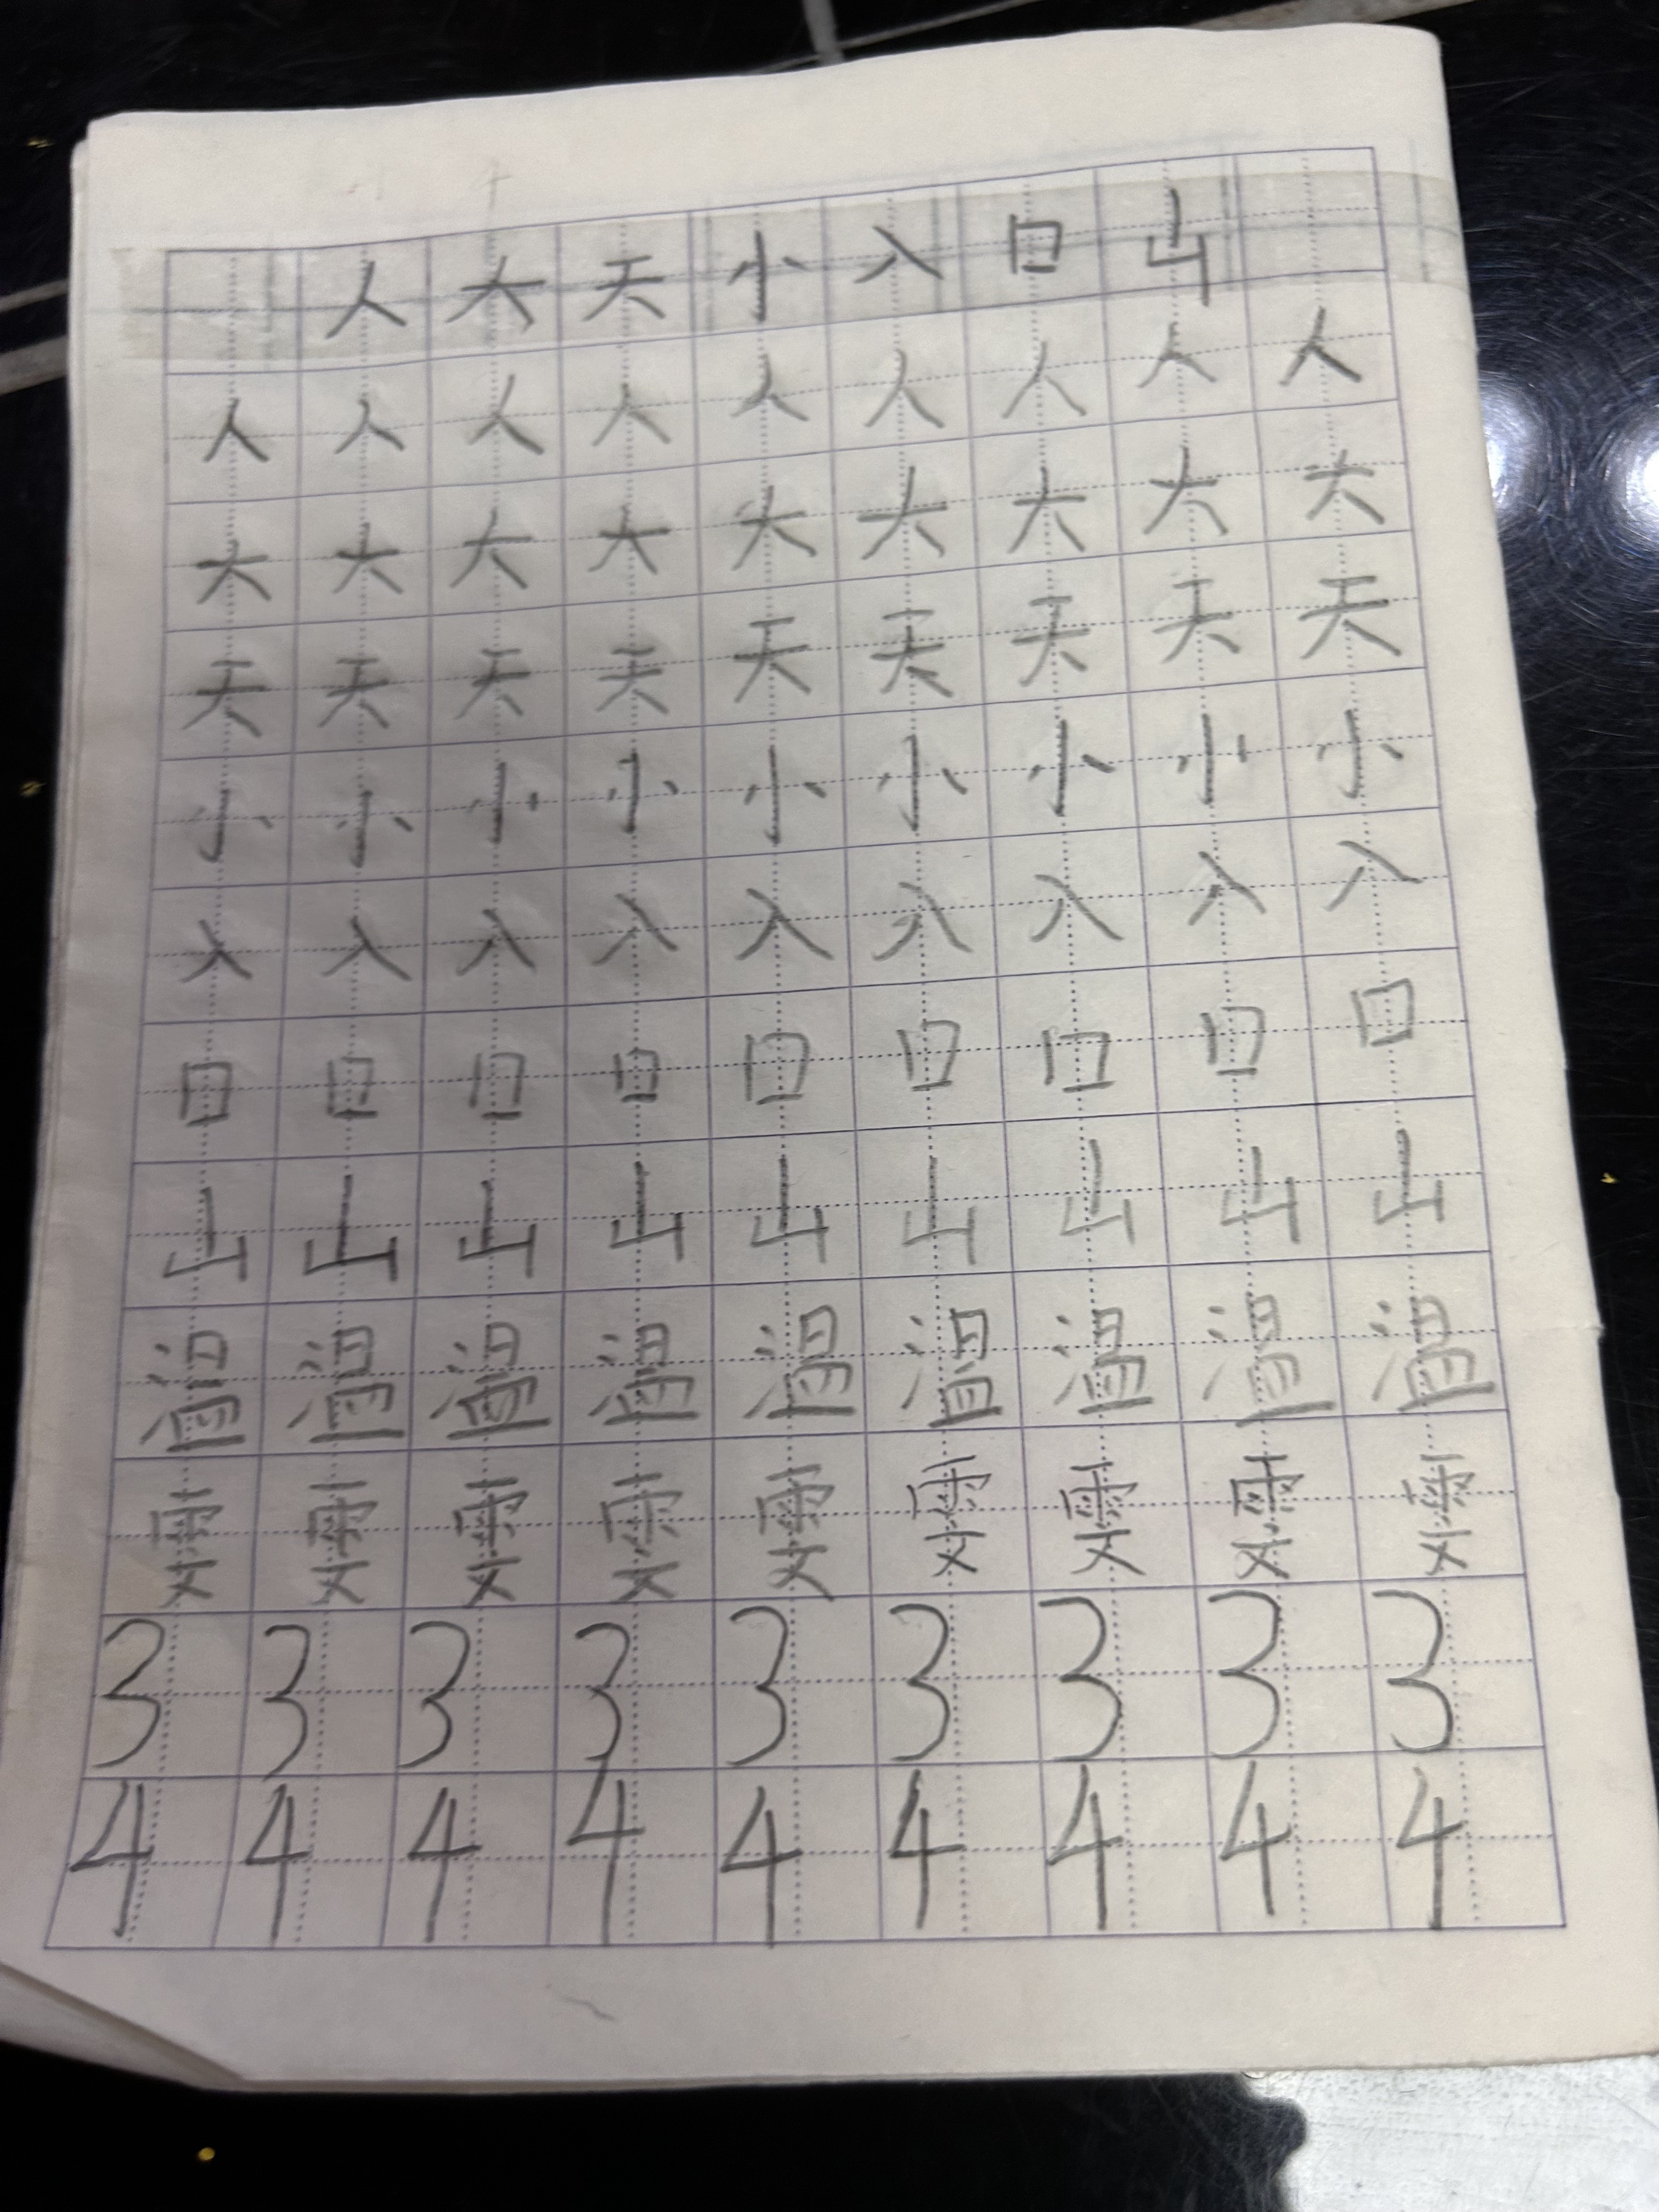 人 大 天 小 入 口 山
人 人 人 人 人 人 人 人 人
大 大 大 大 大 大 大 大 大
天 天 天 天 天 天 天 天 天
小 小 小 小 小 小 小 小 小
入 入 入 入 入 入 入 入 入
口 口 口 口 口 口 口 口 口
山 山 山 山 山 山 山 山 山
温 温 温 温 温 温 温 温 温
雯 雯 雯 雯 雯 雯 雯 雯 雯
3 3 3 3 3 3 3 3 3
4 4 4 4 4 4 4 4 4